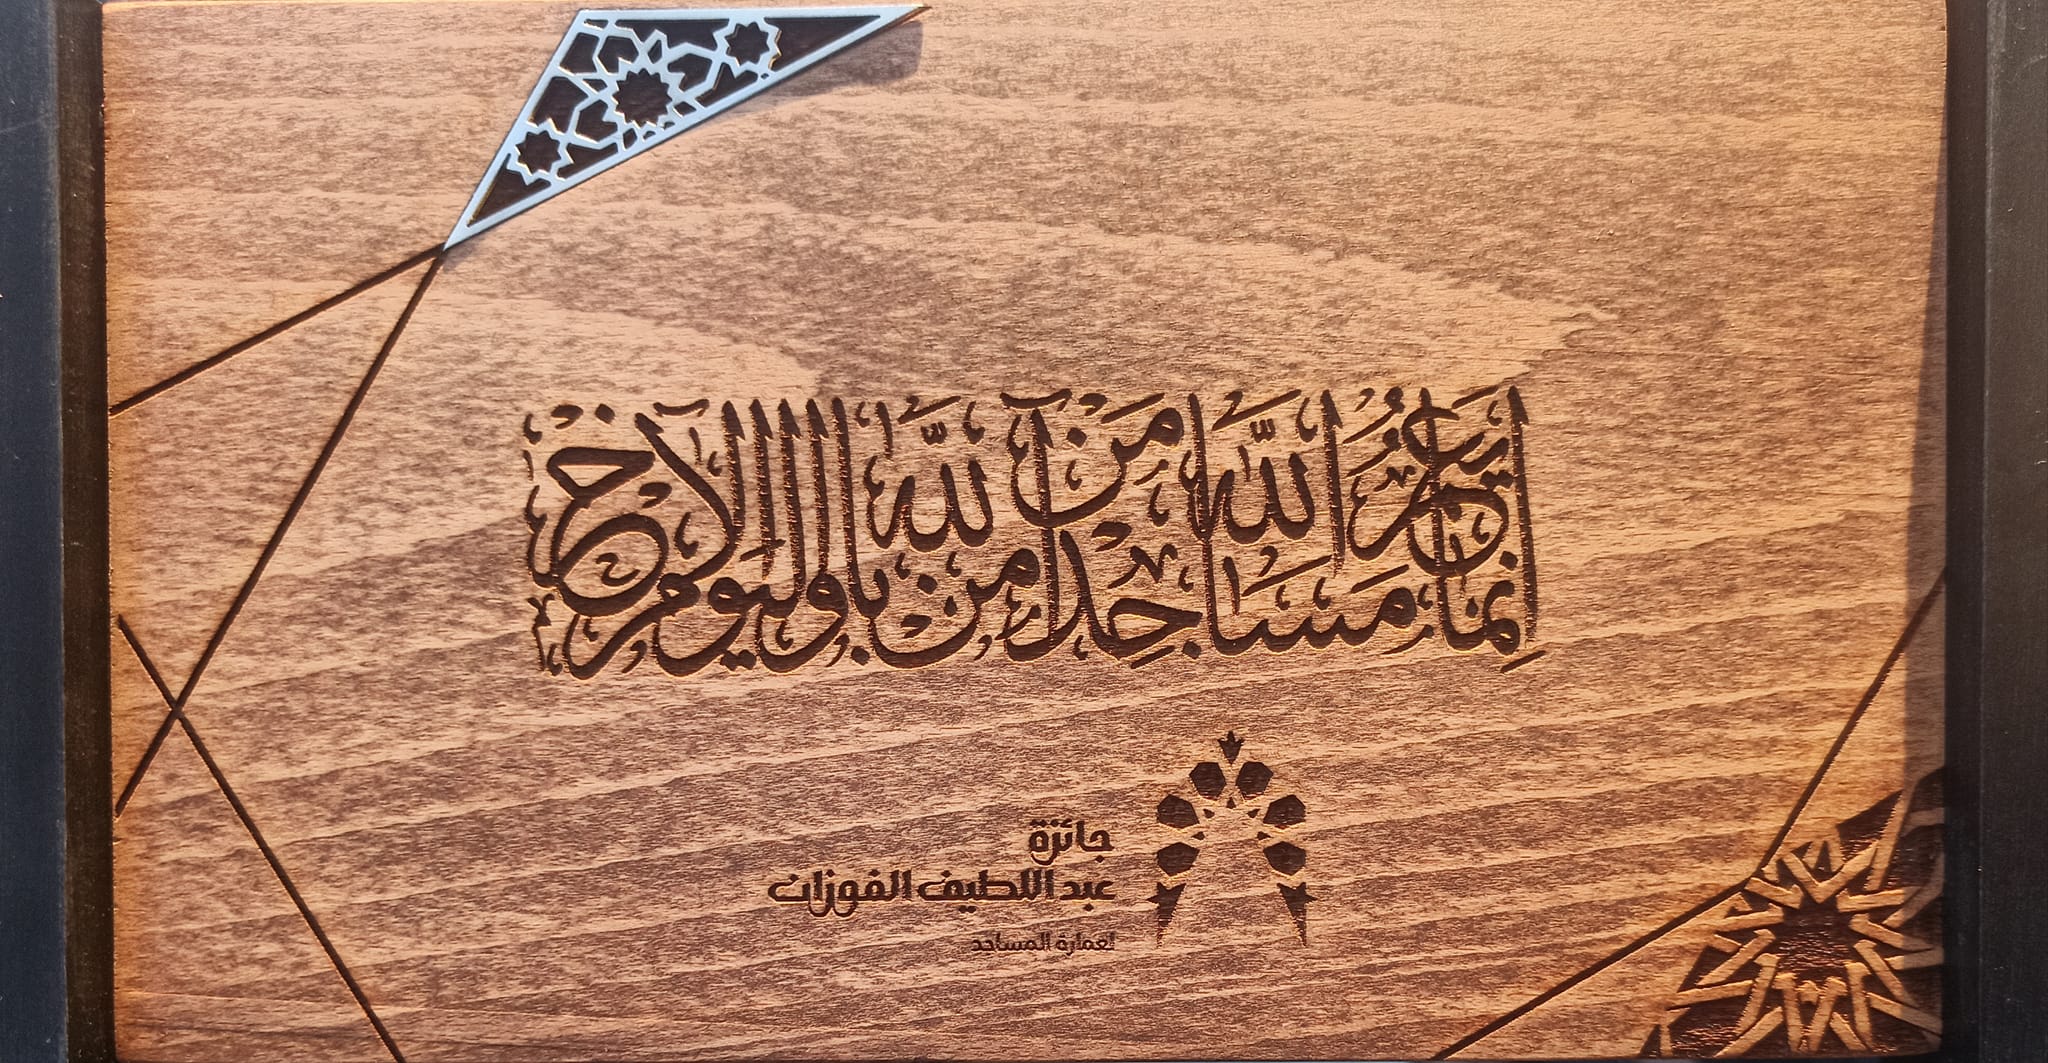 إِنَّمَا يَعْمُرُ مَسَاجِدَ اللَّهِ مَنْ آمَنَ بِاللَّهِ وَالْيَوْمِ الْآخِرِ
جائزة
عبداللطيف الفوزان
لعمارة المساجد